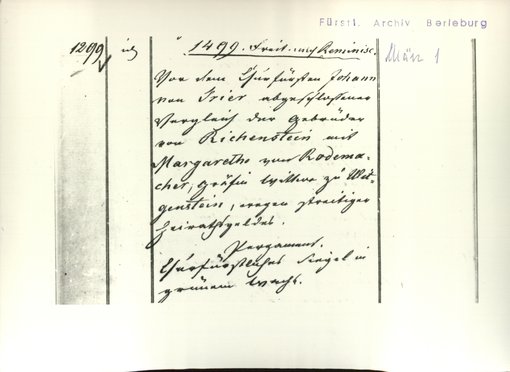 Fürstl. Archiv Berleburg
1299 1499. Freit. nach Reminisc. März 1
Vor dem Churfürsten Johann
von Trier abgeschlossener
Vergleich der Gebrüder
von Richenstein mit
Margarethe von Rodema-
cher, Gräfin Wittwe zu Wit-
genstein, wegen streitiger
Heirathsgeldes.
Pergament.
Churfürstliches Siegel in
grünem Wachs.